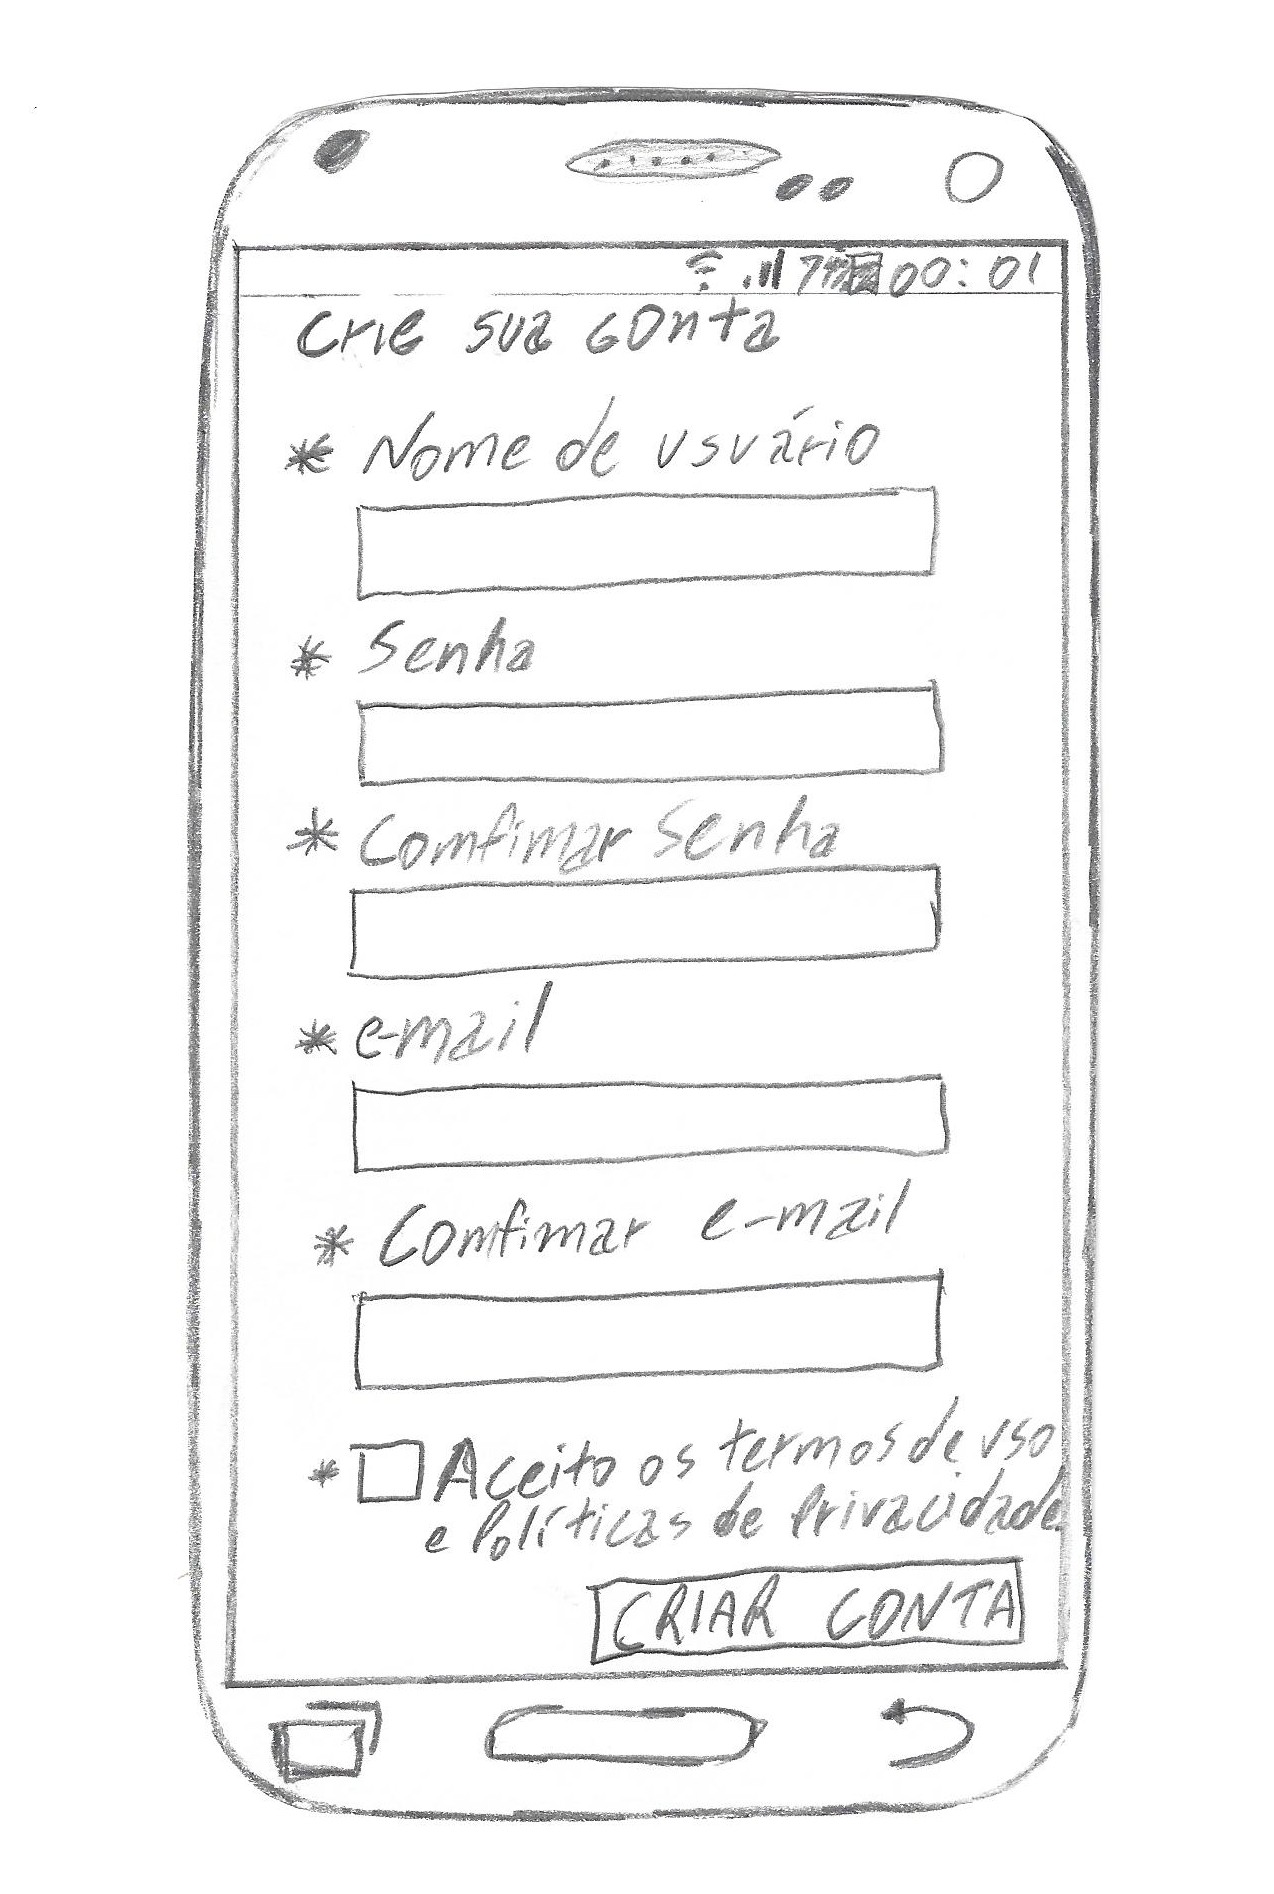 00:01
Crie sua conta
* Nome de usuário
* Senha
* Comfimar Senha
* e-mail
* Comfimar e-mail
* Aceito os termos de uso
e Políticas de Privacidade
CRIAR CONTA